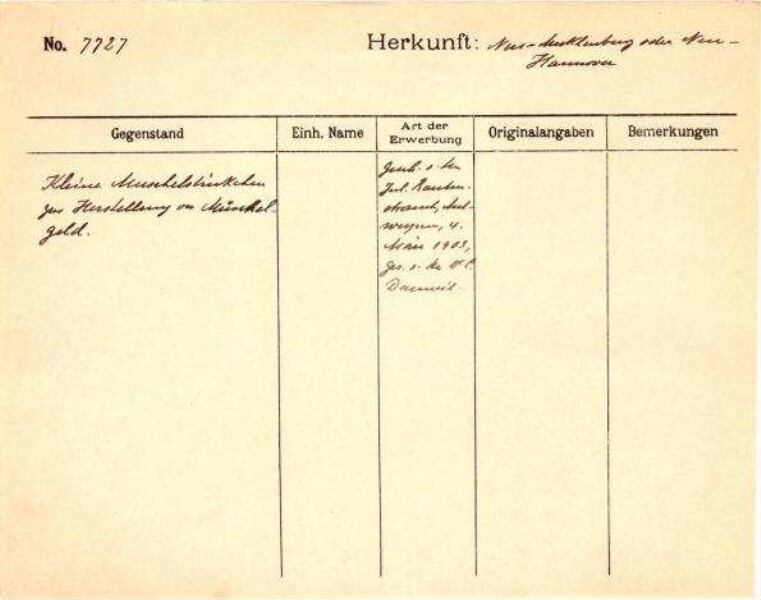 No. 7727
Herkunft: Neu-Mecklenburg oder Neu-
Hannover
Gegenstand
Einh. Name
Art der
Erwerbung
Originalangaben
Bemerkungen
Kleine Muschelstückchen
zur Herstellung von Muschel-
geld.
Gesch. v. Hn
Jul. Rauten-
strauch, Ant-
werpen, 4.
März 1903,
ges. v. Hn